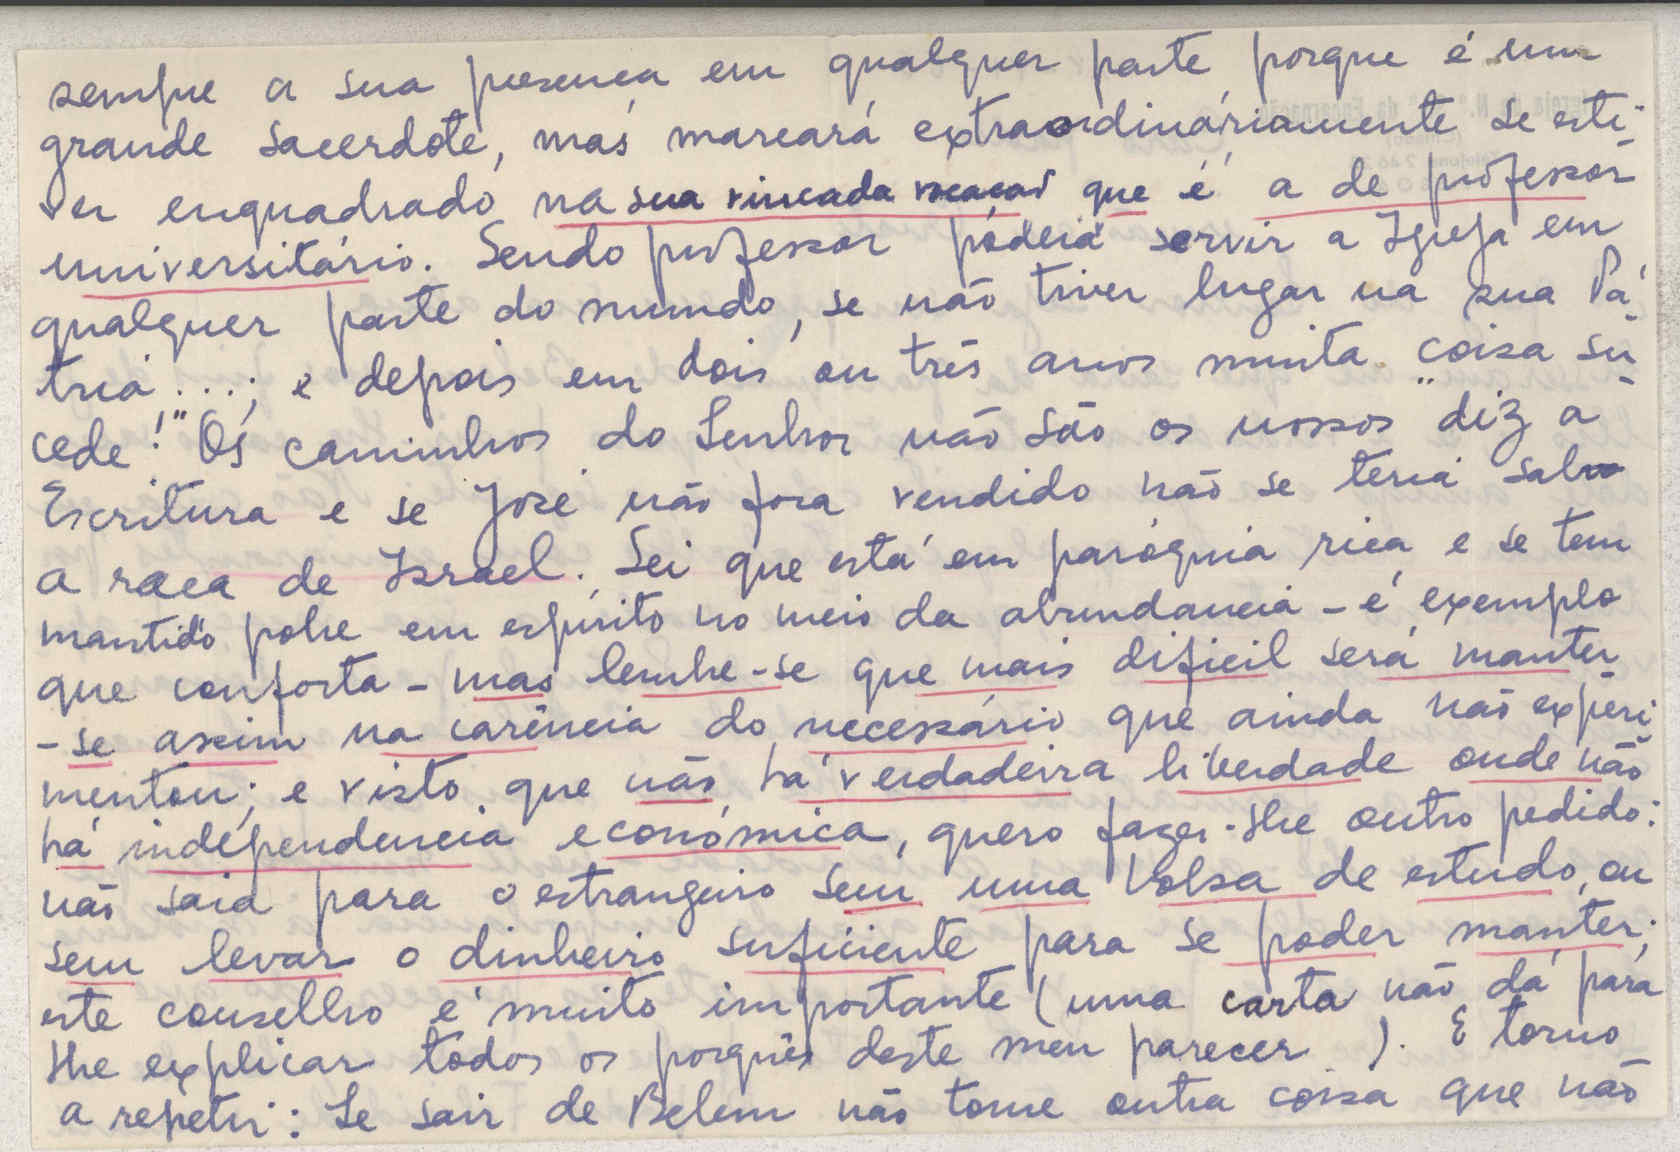 sempre a sua presença em qualquer parte porque é um
grande sacerdote, mas marcará extraordináriamente se esti-
ver enquadrado na sua vincada vocação que é a de professor
universitário. Sendo professor poderá servir a Igreja em
qualquer parte do mundo, se não tiver lugar na sua Pá-
tria...; e depois em dois ou três anos muita coisa su-
cede! "Os caminhos do Senhor não são os nossos" diz a
Escritura e se José não fora vendido não se teria salvo
a raça de Israel. Sei que está em paróquia rica e se tem
mantido pobre em espírito no meio da abundancia - é exemplo
que conforta - mas lembre-se que mais dificil será manter
-se assim na carência do necessário que ainda não experi-
mentou; e visto que não há verdadeira liberdade onde não
há independencia económica, quero fazer-lhe outro pedido:
não saia para o estrangeiro sem uma bolsa de estudo, ou
sem levar o dinheiro suficiente para se poder manter;
este conselho é muito importante (uma carta não dá para
lhe explicar todos os porquês deste meu parecer). E torno
a repetir: Se sair de Belem não tome outra coisa que não